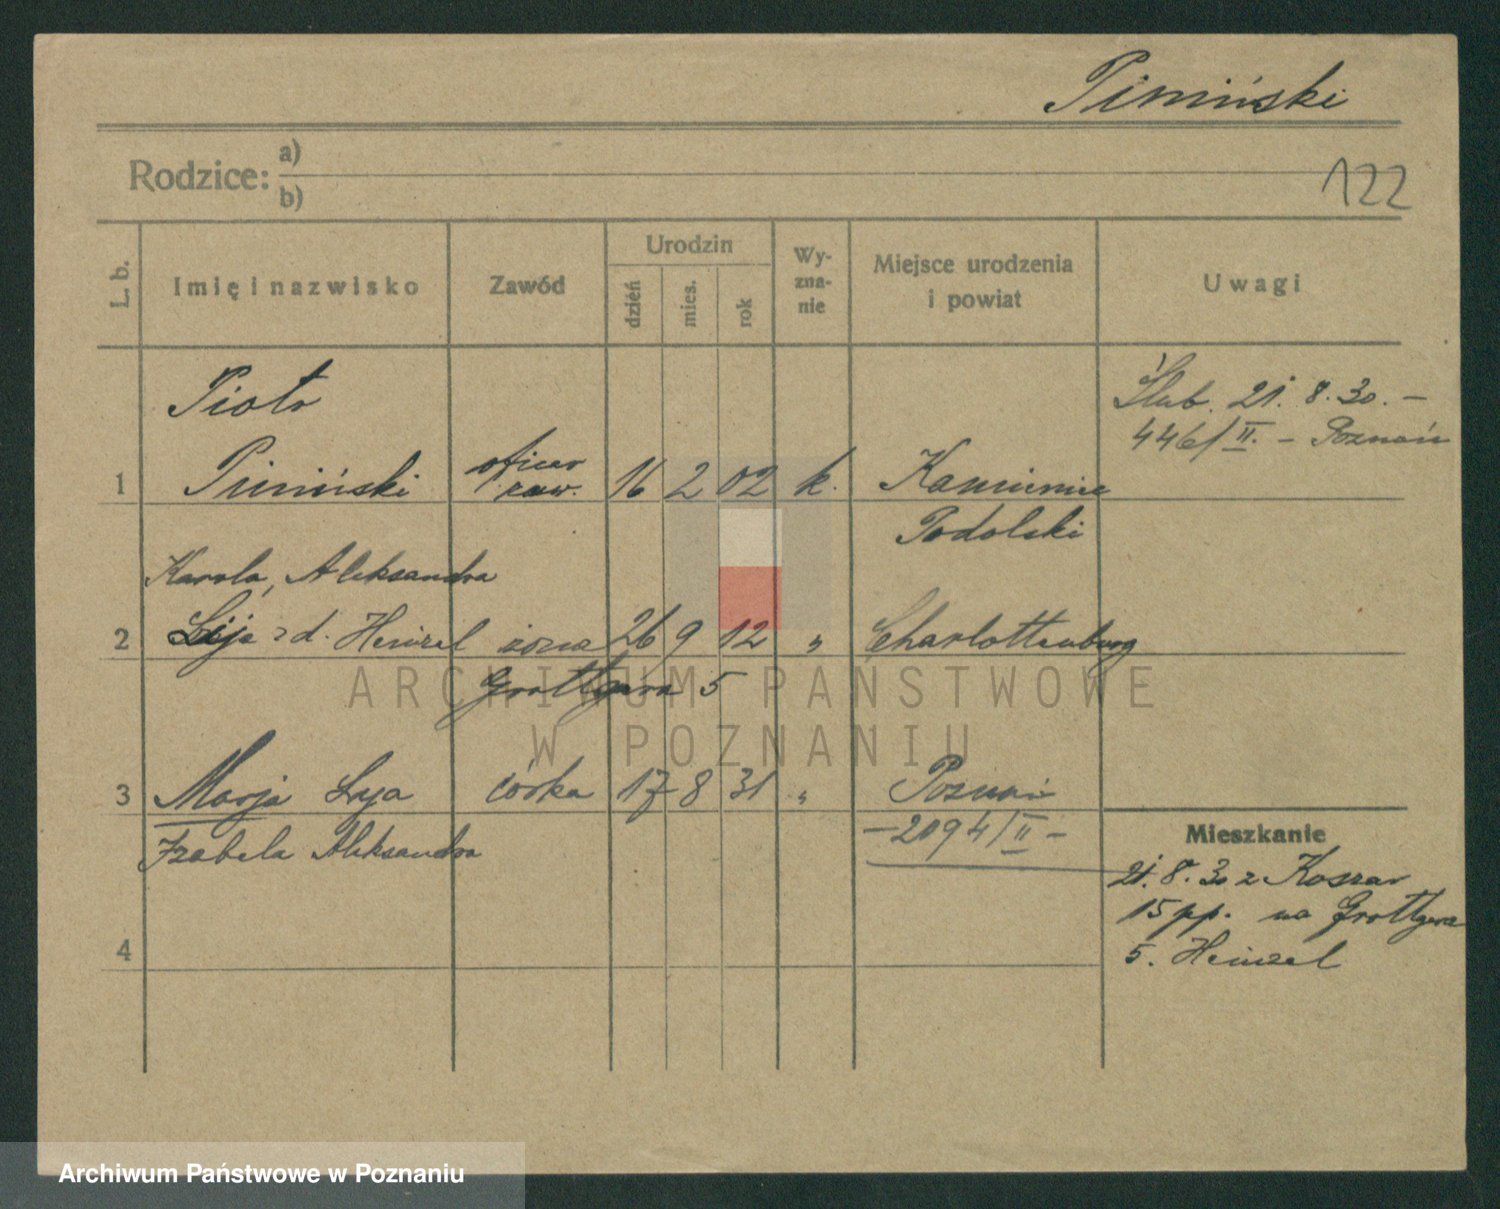 Pimiński
122
Rodzice: a)
b)
L. b.
Imię i nazwisko
Zawód
Urodzin
dzień
mies.
rok
Wy-
zna-
nie
Miejsce urodzenia
i powiat
Uwagi
Ślub. 21. 8. 30. –
446/II. – Poznań
Piotr
1 Pimiński oficer zaw. 16 2 02 k. Kamieniec
Podolski
Karola, Aleksandra
2 Lija zd. Heinzel żona 26 9 12 „ Charlottenburg
Grottgera 5
3 Marja Lya córka 17 8 31 „ Poznań
Izabela Aleksandra – 2094/II –
4
Mieszkanie
21. 8. 30 z Koszar
15 pp. na Grottgera
5. Heinzel
ARCHIWUM PAŃSTWOWE
W POZNANIU
Archiwum Państwowe w Poznaniu